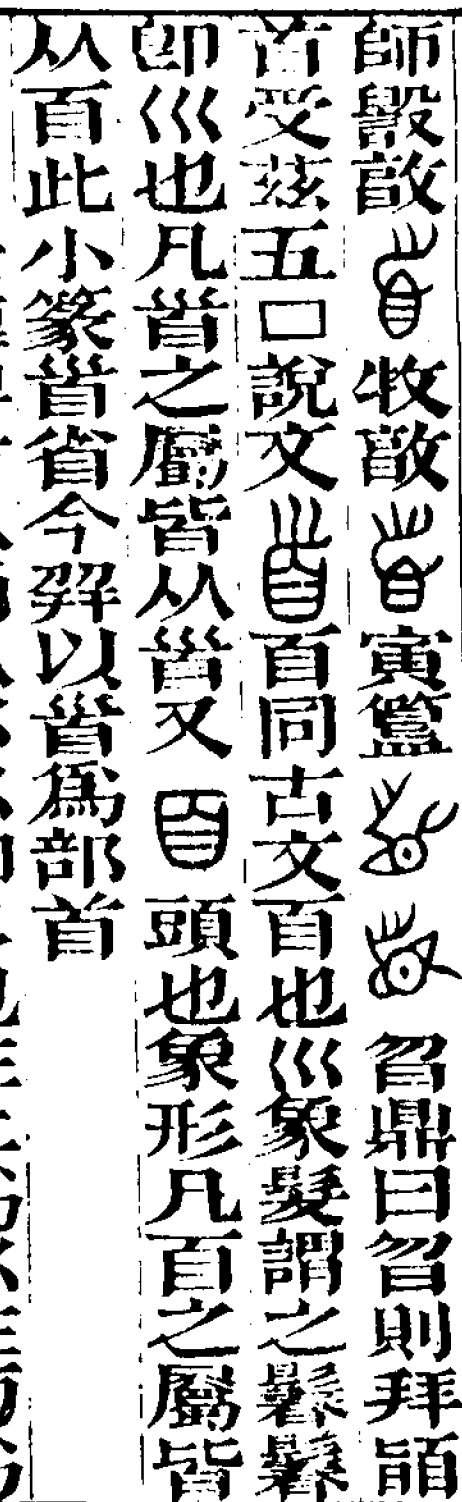 師毀敦牧敦寅簋曶鼎曰曶則拜䭫
首受茲五口說文𦣻同古文𦣻也巛象髮謂之鬊鬊
卽巛也凡𩠐之屬皆从𩠐又頭也象形凡𦣻之屬皆
从𦣻此小篆𩠐省今羿以𩠐爲部首